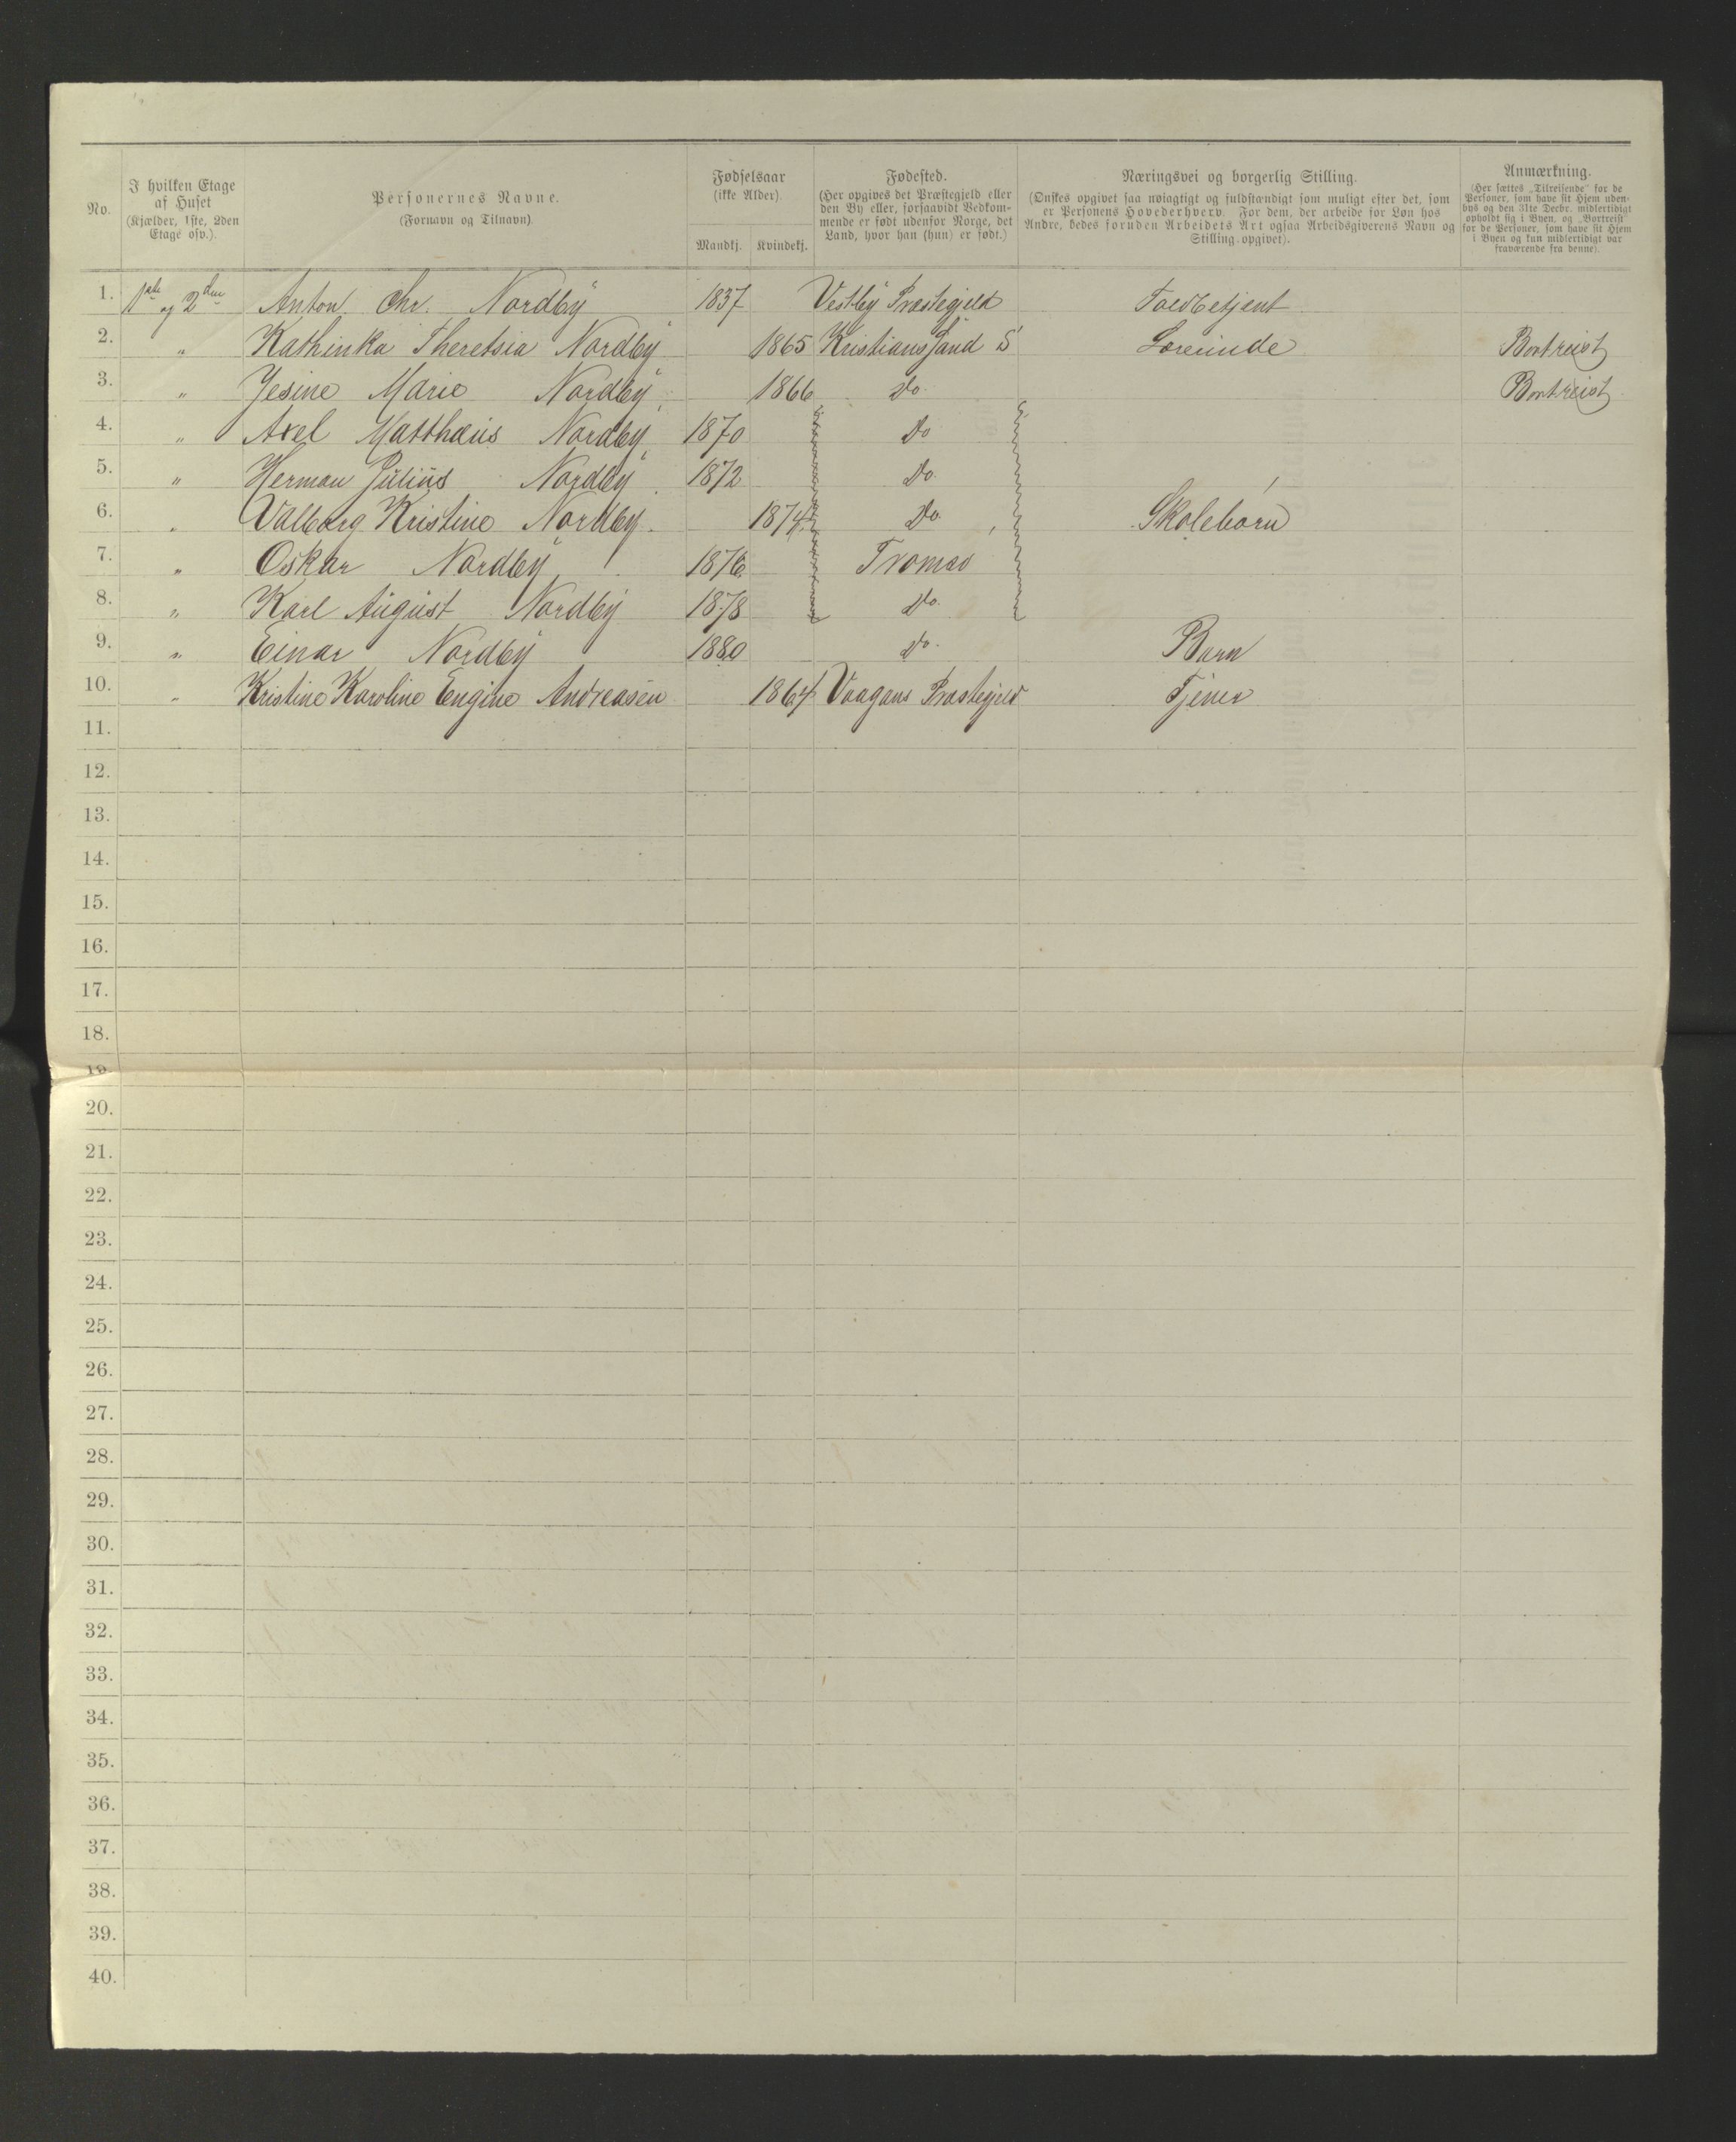 No.
I hvilken Etage
af Huset
(Kjælder, 1ste, 2den
Etage osv.).
Personernes Navne.
(Fornavn og Tilnavn).
Fødselsaar
(ikke Alder).
Mandkj. Kvindekj.
Fødested.
(Her opgives det Præstegjeld eller
den By eller, forsaavidt Vedkom-
mende er født udenfor Norge, det
Land, hvor han (hun) er født.)
Næringsvei og borgerlig Stilling.
(Ønskes opgivet saa nøiagtigt og fuldstændigt som muligt efter det, som
er Personens Hovederhverv. For dem, der arbeide for Løn hos
Andre, bedes foruden Arbeidets Art ogsaa Arbeidsgiverens Navn og
Stilling opgivet).
Anmærkning.
(Her sættes „Tilreisende“ for de
Personer, som have sit Hjem uden-
bys og den 31te Decbr. midlertidigt
opholdt sig i Byen, og „Bortreist“
for de Personer, som have sit Hjem
i Byen og kun midlertidigt var
fraværende fra denne).
1. 1ste og 2den Anton Chr. Nordby 1837 Vestby Præstegjeld Toldbetjent
2. " Kathinka Theretsia Nordby 1865 Kristianssand S Lærerinde Bortreist
3. " Jesine Marie Nordby 1866 Do. Bortreist
4. " Axel Matthæus Nordby 1870 Do
5. " Herman Julius Nordby 1872 Do.
6. " Valborg Kristine Nordby. 1874 Do Skolebørn
7. " Oskar Nordby 1876 Tromsø
8. " Karl August Nordby 1878 Do.
9. " Einar Nordby 1880 Do. Barn
10. " Kristine Karoline Engine Andreasen 1864 Vaagans Præstegjeld Tjener
11.
12.
13.
14.
15.
16.
17.
18.
19.
20.
21.
22.
23.
24.
25.
26.
27.
28.
29.
30.
31.
32.
33.
34.
35.
36.
37.
38.
39.
40.